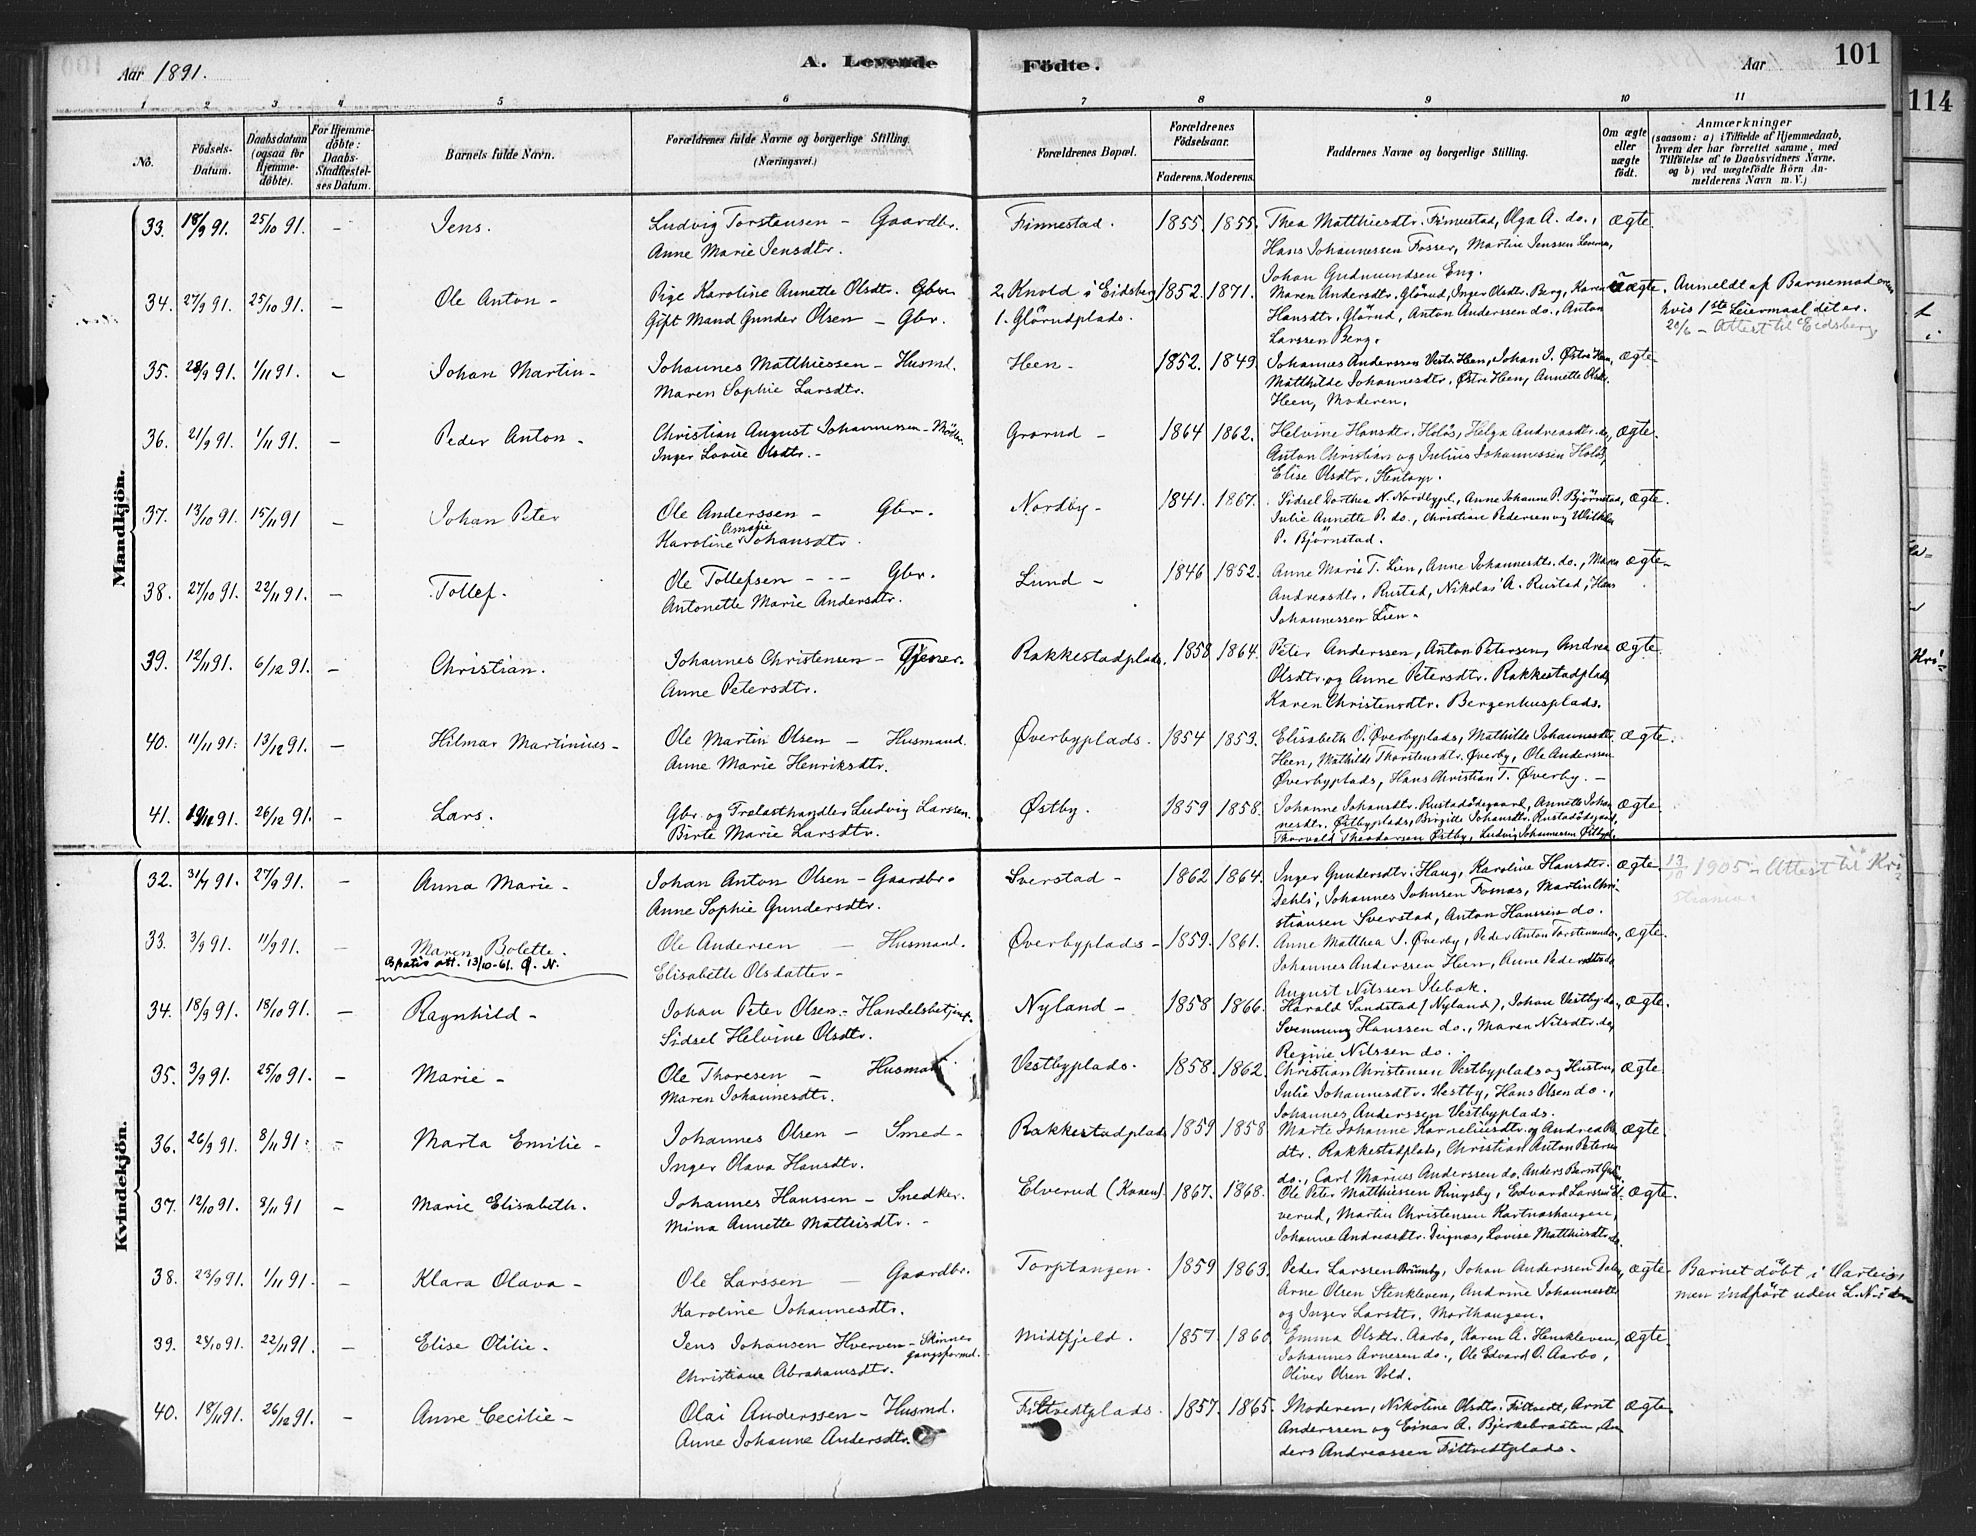 Aar 1891. A. Levende Födte. Aar 101
114
1 2 3 4 5 6 7 8 9 10 11
No. Födsels-Datum. Daabsdatum (ogsaa for Hjemme-döbte). For Hjemme-döbte: Daabs-Stadfæstel-ses Datum. Barnets fulde Navn. Forældrenes fulde Navne og borgerlige Stilling. (Næringsvei.) Forældrenes Bopæl. Forældrenes Födselsaar. Faderens. Moderens. Faddernes Navne og borgerlige Stilling. Om ægte eller uægte födt. Anmærkninger (saasom: a) i Tilfælde af Hjemmedaab, hvem der har forrettet samme, med Tilföielse af to Daabsvidners Navne, og b) ved uægtefödte Börn An-melderens Navn m. V.)
Mandkjön.
33. 18/9 91. 25/10 91. – Jens. Ludvig Torstensen – Gaardbr. Finnestad. 1855. 1855. Thea Matthiesdtr. Finnestad, Olga A. do., ægte.
Anne Marie Jensdtr. Hans Johannessen Fosser, Martin Jenssen
Johan Gudmundsen Eng.
34. 27/9 91. 25/10 91. – Ole Anton – Pige Karoline Annette Olsdtr. Gbr. 2. Knold i Eidsberg 1852. 1871. Maren Andersdtr. Glörud, Inger Olsdtr. Berg, Karen uægte. Anmeldt af Barnemoderen
Gift Mand Gunder Olsen – Gbr. 1. Glörudplads. Hansdtr. Glörud, Anton Anderssen do., Anton hvis 1ste Leiermaal det er.
Larssen Berg. 20/6 – Attest til Eidsberg
35. 28/9 91. 1/11 91. – Johan Martin – Johannes Matthiessen – Husmd. Heen – 1852. 1849. Johannes Anderssen Vestr. Heen, Johan J. Østre Heen, ægte
Maren Sophie Larsdtr. Mathilde Johannesdtr. Østre Heen, Annette Olsdtr.
Heen, Moderen.
36. 21/9 91. 1/11 91. – Peder Anton – Christian August Johannesen – Möller. Grarud – 1864 1862. Helvine Hansdtr. Holös, Helga Andreasdtr. do., ægte.
Inger Lovise Olsdtr. – Anton Christian og Julius Johannessen Holös,
Elise Olsdtr. Stentorp.
37. 13/10 91. 15/11 91 – Johan Peter Ole Anderssen – Gbr. Nordby – 1841. 1867. Sidsel Dorthea N. Nordbypl., Anne Johanne P. Bjørnstad, ægte.
Karoline Amalie Johansdtr. Julie Annette P. do., Christian Pedersen og Wilhelm
P. Bjørnstad.
38. 27/10 91. 22/11 91. – Tollef. Ole Tollefsen – – – Gbr. Lund – 1846 1852. Anne Marie T. Lien, Anne Johannesdtr. do., Maren ægte –
Antonette Marie Andersdtr. Andreasdtr. Rustad, Nikolai A. Rustad, Hans
Johannessen Lien –
39. 12/11 91. 6/12 91. – Christian. Johannes Christensen – Tjener. Rakkestadplads. 1858 1864. Peter Anderssen, Anton Petersen, Andrea ægte.
Anne Petersdtr. Olsdtr. og Anne Petersdtr. Rakkestadplads,
Karen Christensdtr. Bergenhusplads.
40. 11/11 91. 13/12 91. – Hilmar Martinius – Ole Martin Olsen – Husmand. Øverbyplads. 1854 1853. Elisabeth O. Øverbyplads, Mathilde Johannesdtr. ægte.
Anne Marie Henriksdtr. Heen, Mathilde Thorstensdtr. Øverby, Ole Anderssen
Øverbyplads, Hans Christian T. Øverby. –
41. 26/12 91. – Lars. Gbr. og Trælasthandler Ludvig Larssen. Østby. 1859 1858. Johanne Johansdtr. Rustadödegaard, Annette Johan ægte.
Birte Marie Larsdtr. nesdtr. Østbyplads, Birgitte Johansdtr. Rustadödegaard,
Thorvald Theodorsen Østby, Ludvig Johannesen Østbypl.
Kvindekjön.
32. 31/7 91. 27/9 91. – Anna Marie – Johan Anton Olsen – Gaardbr. Sverstad – 1862 1864. Inger Gundersdtr. Haug, Karoline Hansdtr. ægte. 13/10 1905 – Attest til Kri-
Anne Sophie Gundersdtr. Dehli, Johannes Johnsen Fosnæs, Martin Chri- stiania.
stiansen Sverstad, Anton Hanssen do.
33. 3/9 91. 11/9 91. – Maren Bolette. Ole Andersen – Husmand. Øverbyplads – 1859. 1861. Anne Matthea J. Øverby, Peder Anton Torstensen do., ægte.
Gratis att. 13/10-61. Q. N. Elisabeth Olsdatter – Johannes Anderssen Heen, Anne Pedersdtr. do
August Nilssen Ilebæk.
34. 18/9 91. 18/10 91. – Ragnhild – Johan Peter Olsen – Handelsbetjent. Nyland – 1858 1866. Harald Sandstad (Nyland), Johan Vestby do., ægte.
Sidsel Helvine Olsdtr. Svenning Hanssen do., Maren Nilsdtr. do,
Regine Nilssen do.
35. 3/9 91. 25/10 91. – Marie – Ole Thoresen – Husmand Vestbyplads. 1858. 1862. Christian Christensen Vestbyplads og Hustru, ægte
Maren Johannesdtr. Julie Johannesdtr. Vestby, Hans Olsen do.,
Johannes Anderssen Vestbyplads.
36. 26/9 91. 8/11 91. – Marta Emilie – Johannes Olsen – Smed – Rakkestadplads 1859 1858 Marte Johanne Korneliusdtr. og Andrea ægte.
Inger Olava Hansdtr. dtr. Rakkestadplads, Christian Anton Petersen
do., Carl Marius Anderssen do, Anders Bernt
37. 12/10 91. 8/11 91 – Marie Elisabeth. Johannes Hanssen – Snedker. Elverud (Kaxen). 1867. 1868. Ole Peter Matthiessen Ringsby, Edvard Larssen El- ægte.
Mina Annette Mathisdtr. – verud, Martin Christensen
Johanne Andreasdtr. Deignæs, Lovise Matthiesdtr. do.
38. 23/9 91. 1/11 91. – Klara Olava – Ole Larssen – Gaardbr. Torptangen. 1859 1863. Peder Larssen Brumby, Johan Anderssen ægte. Barnet döbt i Varteig,
Karoline Johannesdtr. Arne Olsen Stenkleven, Andrine Johannesdtr. men indfört uden L. N. i den
og Inger Larsdtr. Morthaugen.
39. 22/11 91. – Elise Otilie – Jens Johansen Hverven – Skinne- Midtfjeld. 1857. 1860. Emma Olsdtr. Aarbo, Karen A. Henskleven, ægte
gangsformd. Christiane Abrahamsdtr. Johannes Arnesen do., Ole Edvard O. Aarbo,
Oliver Olsen Vold.
40. 18/11 91. 26/12 91. – Anne Cecilie – Olai Anderssen – Husmd. Filtvedtplads. 1857. 1865. Moderen, Nikoline Olsdtr. Filtvedt, Arnt ægte.
Anne Johanne Andersdtr. Anderssen og Einar A. Bjerkebraaten, An
ders Andreassen Filtvedtplads.